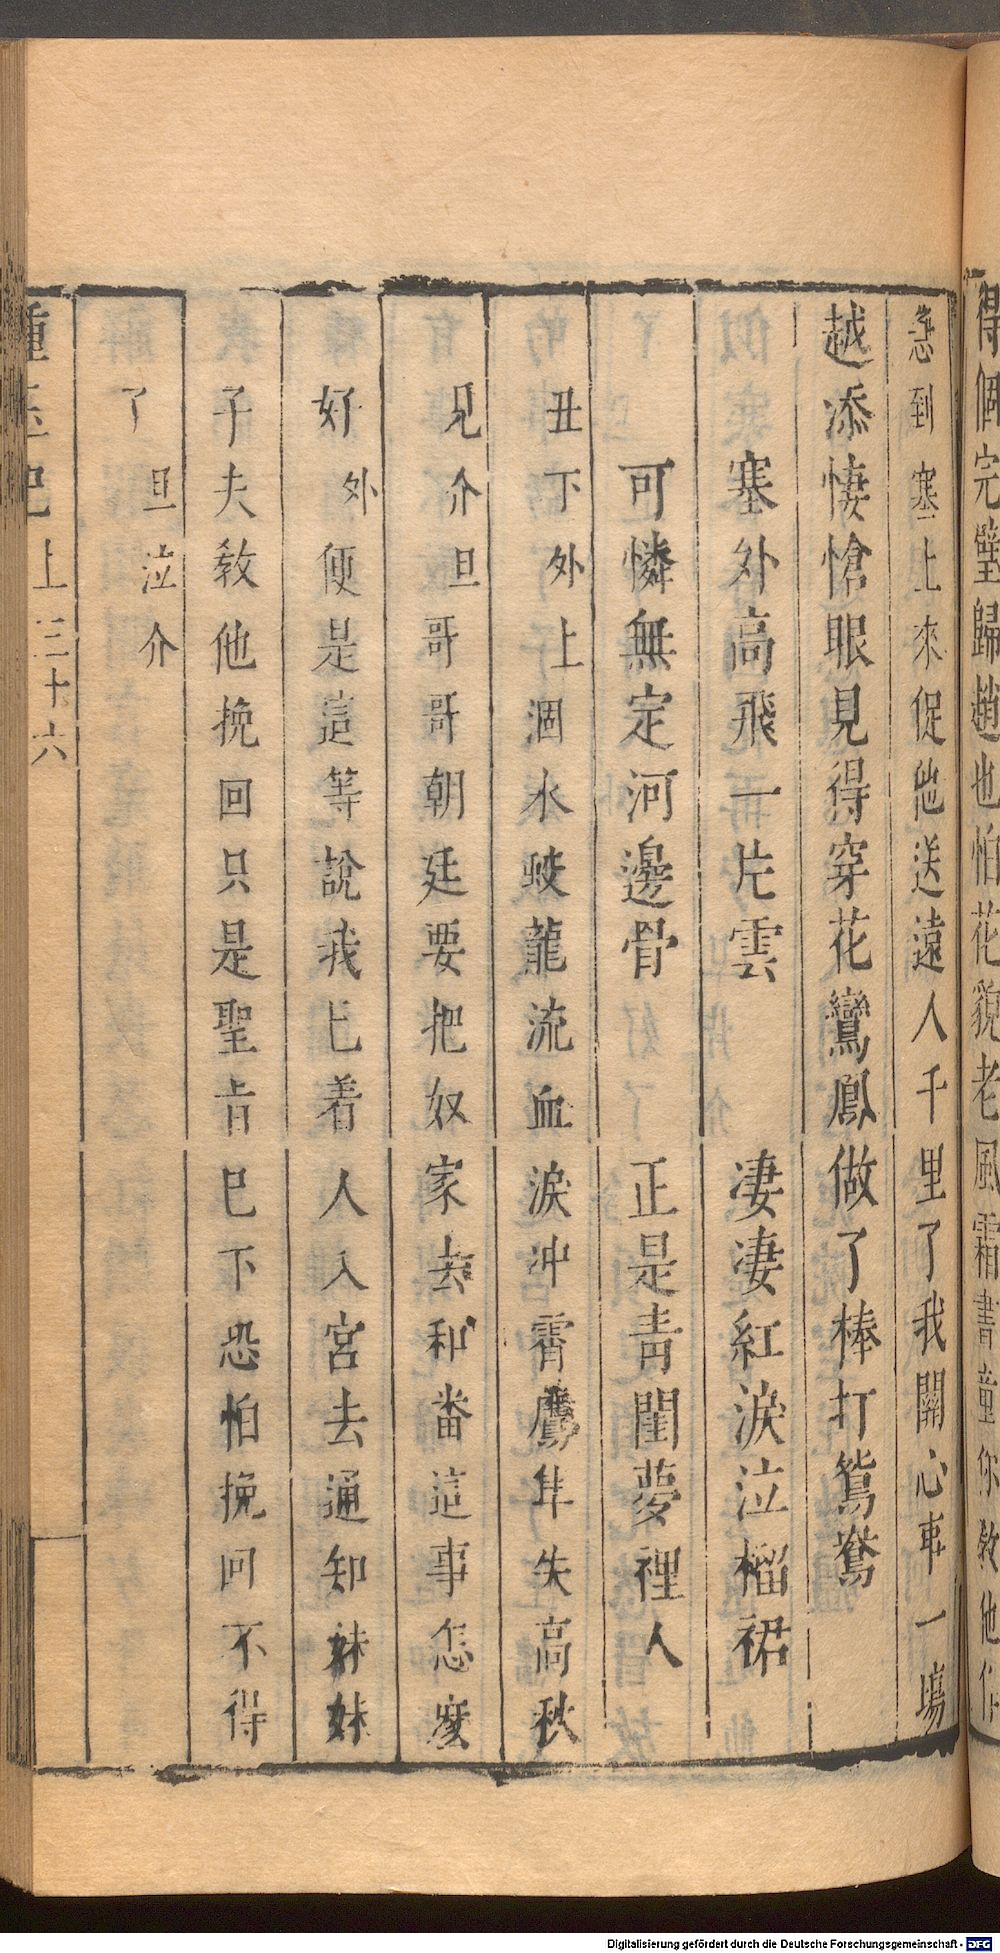 得個完璧歸趙也怕花貌老風霜書童你敎他
怎到塞上來促他送遠人千里了我關心事一塲
越添悽愴眼見得穿花鸞鳳做了棒打鴛鴦
塞外高飛一片雲　凄凄紅淚泣榴裙
可憐無定河邊骨　正是青閨夢裡人
丑下外上涸水蛟龍流血淚冲霄鷹隼失高秋
見介旦哥哥朝廷要把奴家去和畨這事怎麽
好外便是這等說我已着人入宮去通知妹妹
子夫敎他挽回只是聖㫖已下恐怕挽回不得
了旦泣介
種玉記上 三十六
Digitalisierung gefördert durch die Deutsche Forschungsgemeinschaft - DFG